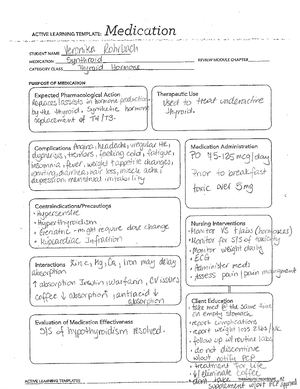 ACTIVE LEARNING TEMPLATE: Medication
STUDENT NAME Veronika Rohrbach
MEDICATION Synthroid REVIEW MODULE CHAPTER
CATEGORY CLASS Thyroid Hormone
PURPOSE OF MEDICATION
Expected Pharmacological Action
Replaces/assists in hormone production
by the thyroid. Synthetic hormone
replacement of T4/T3.
Therapeutic Use
Used to treat underactive
thyroid.
Complications Angina, headache, irregular HR,
dyspnea, tremors, feeling cold, fatigue,
insomnia, fever, weight + appetite changes,
vomiting, diarrhea, hair loss, muscle ache,
depression, irritability
Medication Administration
PO 75-125 mcg/day
Prior to breakfast
toxic over 5mg
Contraindications/Precautions
• Hypersensitive
• Hyperthyroidism
• Geriatric - might require dose change
• Myocardial Infarction
Nursing Interventions
• Monitor VS + labs (hormones)
• Monitor for S/S of toxicity
• Monitor weight daily
• ECG
• Administer meds
• Assess pain / pain management
Interactions Zinc, Mg, Ca, Iron may delay
absorption
↑ absorption Insulin, warfarin, CV issues
coffee ↓ absorption, antiacid ↓
absorption
Evaluation of Medication Effectiveness
S/S of hypothyroidism resolved.
Client Education
• take med @ the same time
on empty stomach
• report complications
• report weight loss
• follow up w/ routine labs
• do not discontinue
w/out notify PCP
• treatment for life
• ↓/eliminate coffee
• don't take
supplement w/out PCP approval
ACTIVE LEARNING TEMPLATES